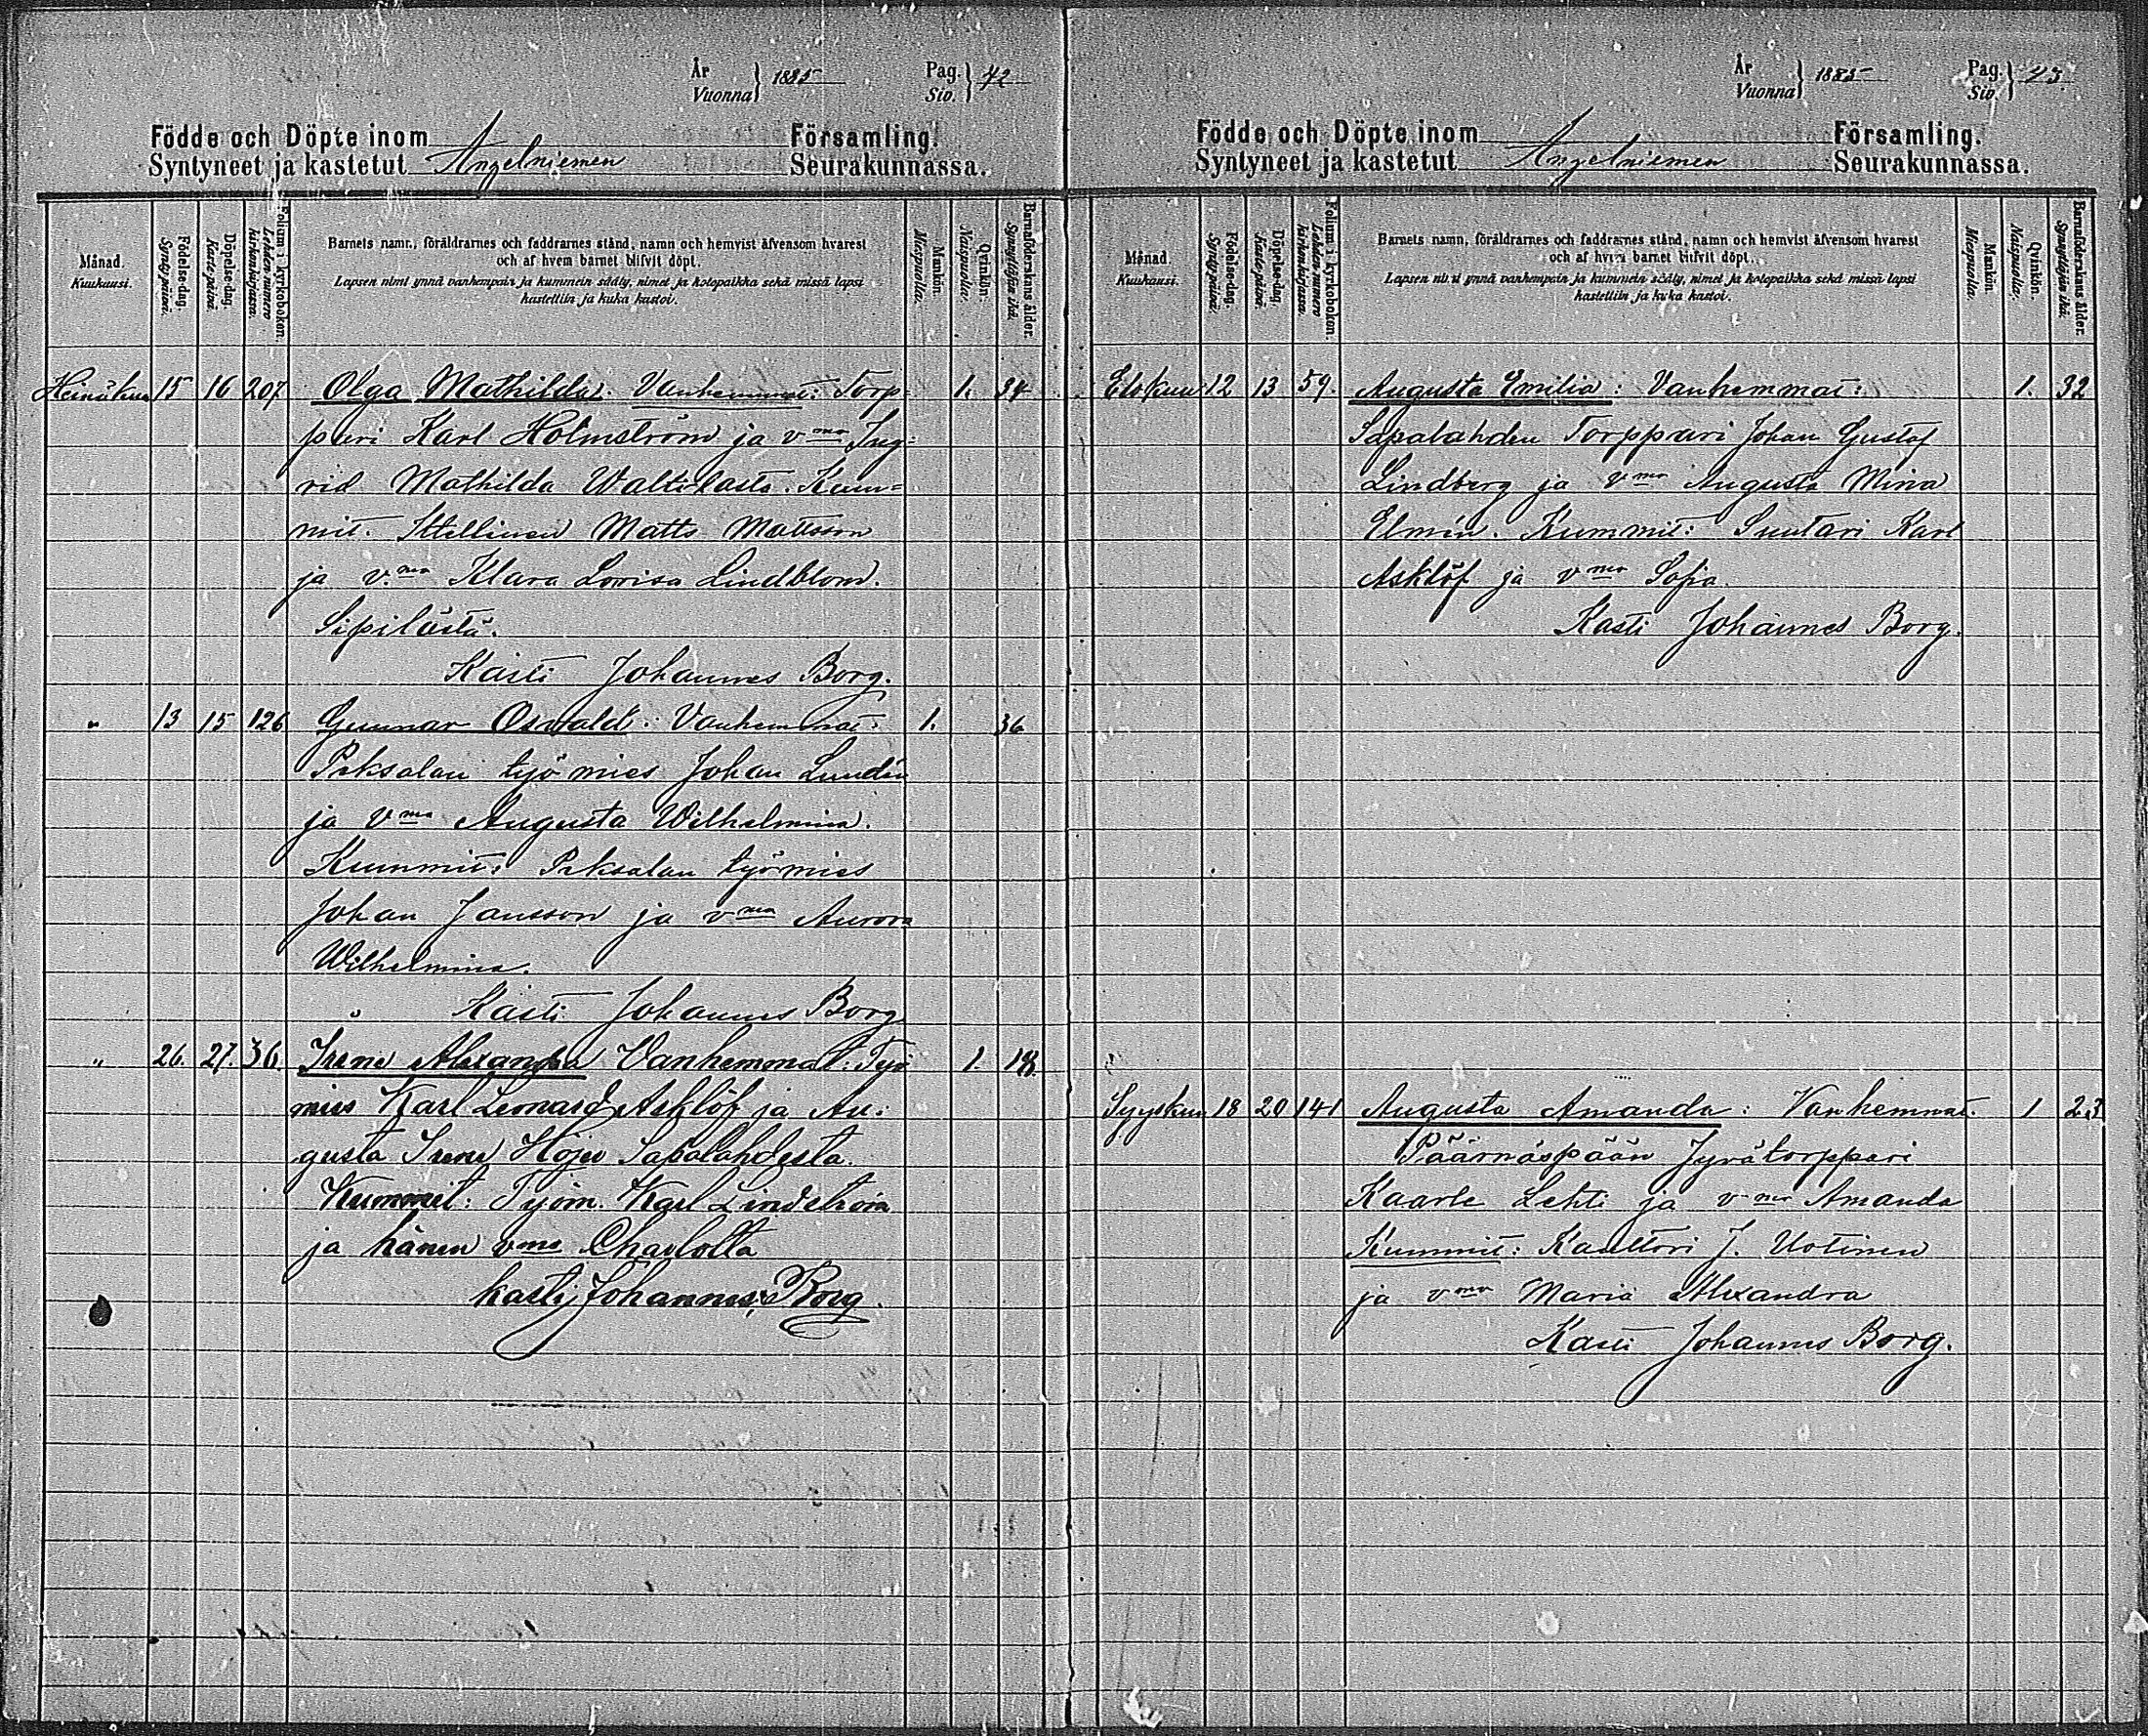 År
Vuonna } 1885
Pag.
Siv. } 42
Födde och Döpte inom Församling.
Syntyneet ja kastetut Angelniemen Seurakunnassa.
Månad.
Kuukausi.
Födelsedag.
Syntypäivä.
Döpelsedag.
Kastepäivä.
Folium i kyrkobokon.
Lehden numero kirkonkirjassa.
Barnets namn, föräldrarnes och faddrarnes stånd, namn och hemvist äfvensom hvarest
och af hvem barnet blifvit döpt.
Lapsen nimi ynnä vanhempain ja kummein sääty, nimet ja kotopaikka sekä missä lapsi
kastettiin ja kuka kastoi.
Mankön.
Miespuolia.
Qvinkön.
Naispuolia.
Barnaföderskans ålder.
Synnyttäjän ikä.
Heinäkuu 15 16 207 Olga Mathilda. Vanhemmat: Torp= 1. 34
pari Karl Holmström ja vmo Ing=
rid Mathilda Waltilasta. Kum=
mit. Itellinen Matts Mattsson
ja v.mo Klara Lovisa Lindblom.
Sipilästä.
Kasti Johannes Borg.
" 13 15 126 Gunnar Osvald: Vanhemmat: 1. 36
Peksalan työmies Johan Lundén
ja vmo Augusta Wilhelmina.
Kummit: Peksalan työmies
Johan Jansson ja vmo Aurora
Wilhelmina.
Kasti Johannes Borg
" 26. 27. 36. Irene Alexandra Vanhemmat: Työ 1. 18.
mies Karl Leonard Asklöf ja Au:
gusta Irene Höjer Sapalahdesta.
Kummit: Työm. Karl Lindström
ja hänen vmo Charlotta
kasti Johannes Borg.
År
Vuonna } 1885
Pag.
Siv. } 43.
Födde och Döpte inom Församling.
Syntyneet ja kastetut Angelniemen Seurakunnassa.
Månad.
Kuukausi.
Födelsedag.
Syntypäivä.
Döpelsedag.
Kastepäivä.
Folium i kyrkobokon.
Lehden numero kirkonkirjassa.
Barnets namn, föräldrarnes och faddrarnes stånd, namn och hemvist äfvensom hvarest
och af hvem barnet blifvit döpt.
Lapsen nimi ynnä vanhempain ja kummein sääty, nimet ja kotopaikka sekä missä lapsi
kastettiin ja kuka kastoi.
Mankön.
Miespuolia.
Qvinkön.
Naispuolia.
Barnaföderskans ålder.
Synnyttäjän ikä.
Elokuu 12 13 59. Augusta Emilia: Vanhemmat: 1. 32
Sapalahden Torppari Johan Gustaf
Lindberg ja vmo Augusta Mina
Elmin. Kummit: Suutari Karl
Asklöf ja vmo Sofia.
Kasti Johannes Borg.
Syyskuu 18 20 141 Augusta Amanda: Vanhemmat. 1 23
Päärnäspään Jyrätorppari
Kaarle Lehti ja vmo Amanda
Kummit: Kanttori J. Uotinen
ja vmo Maria Alexandra
Kasti Johannes Borg.